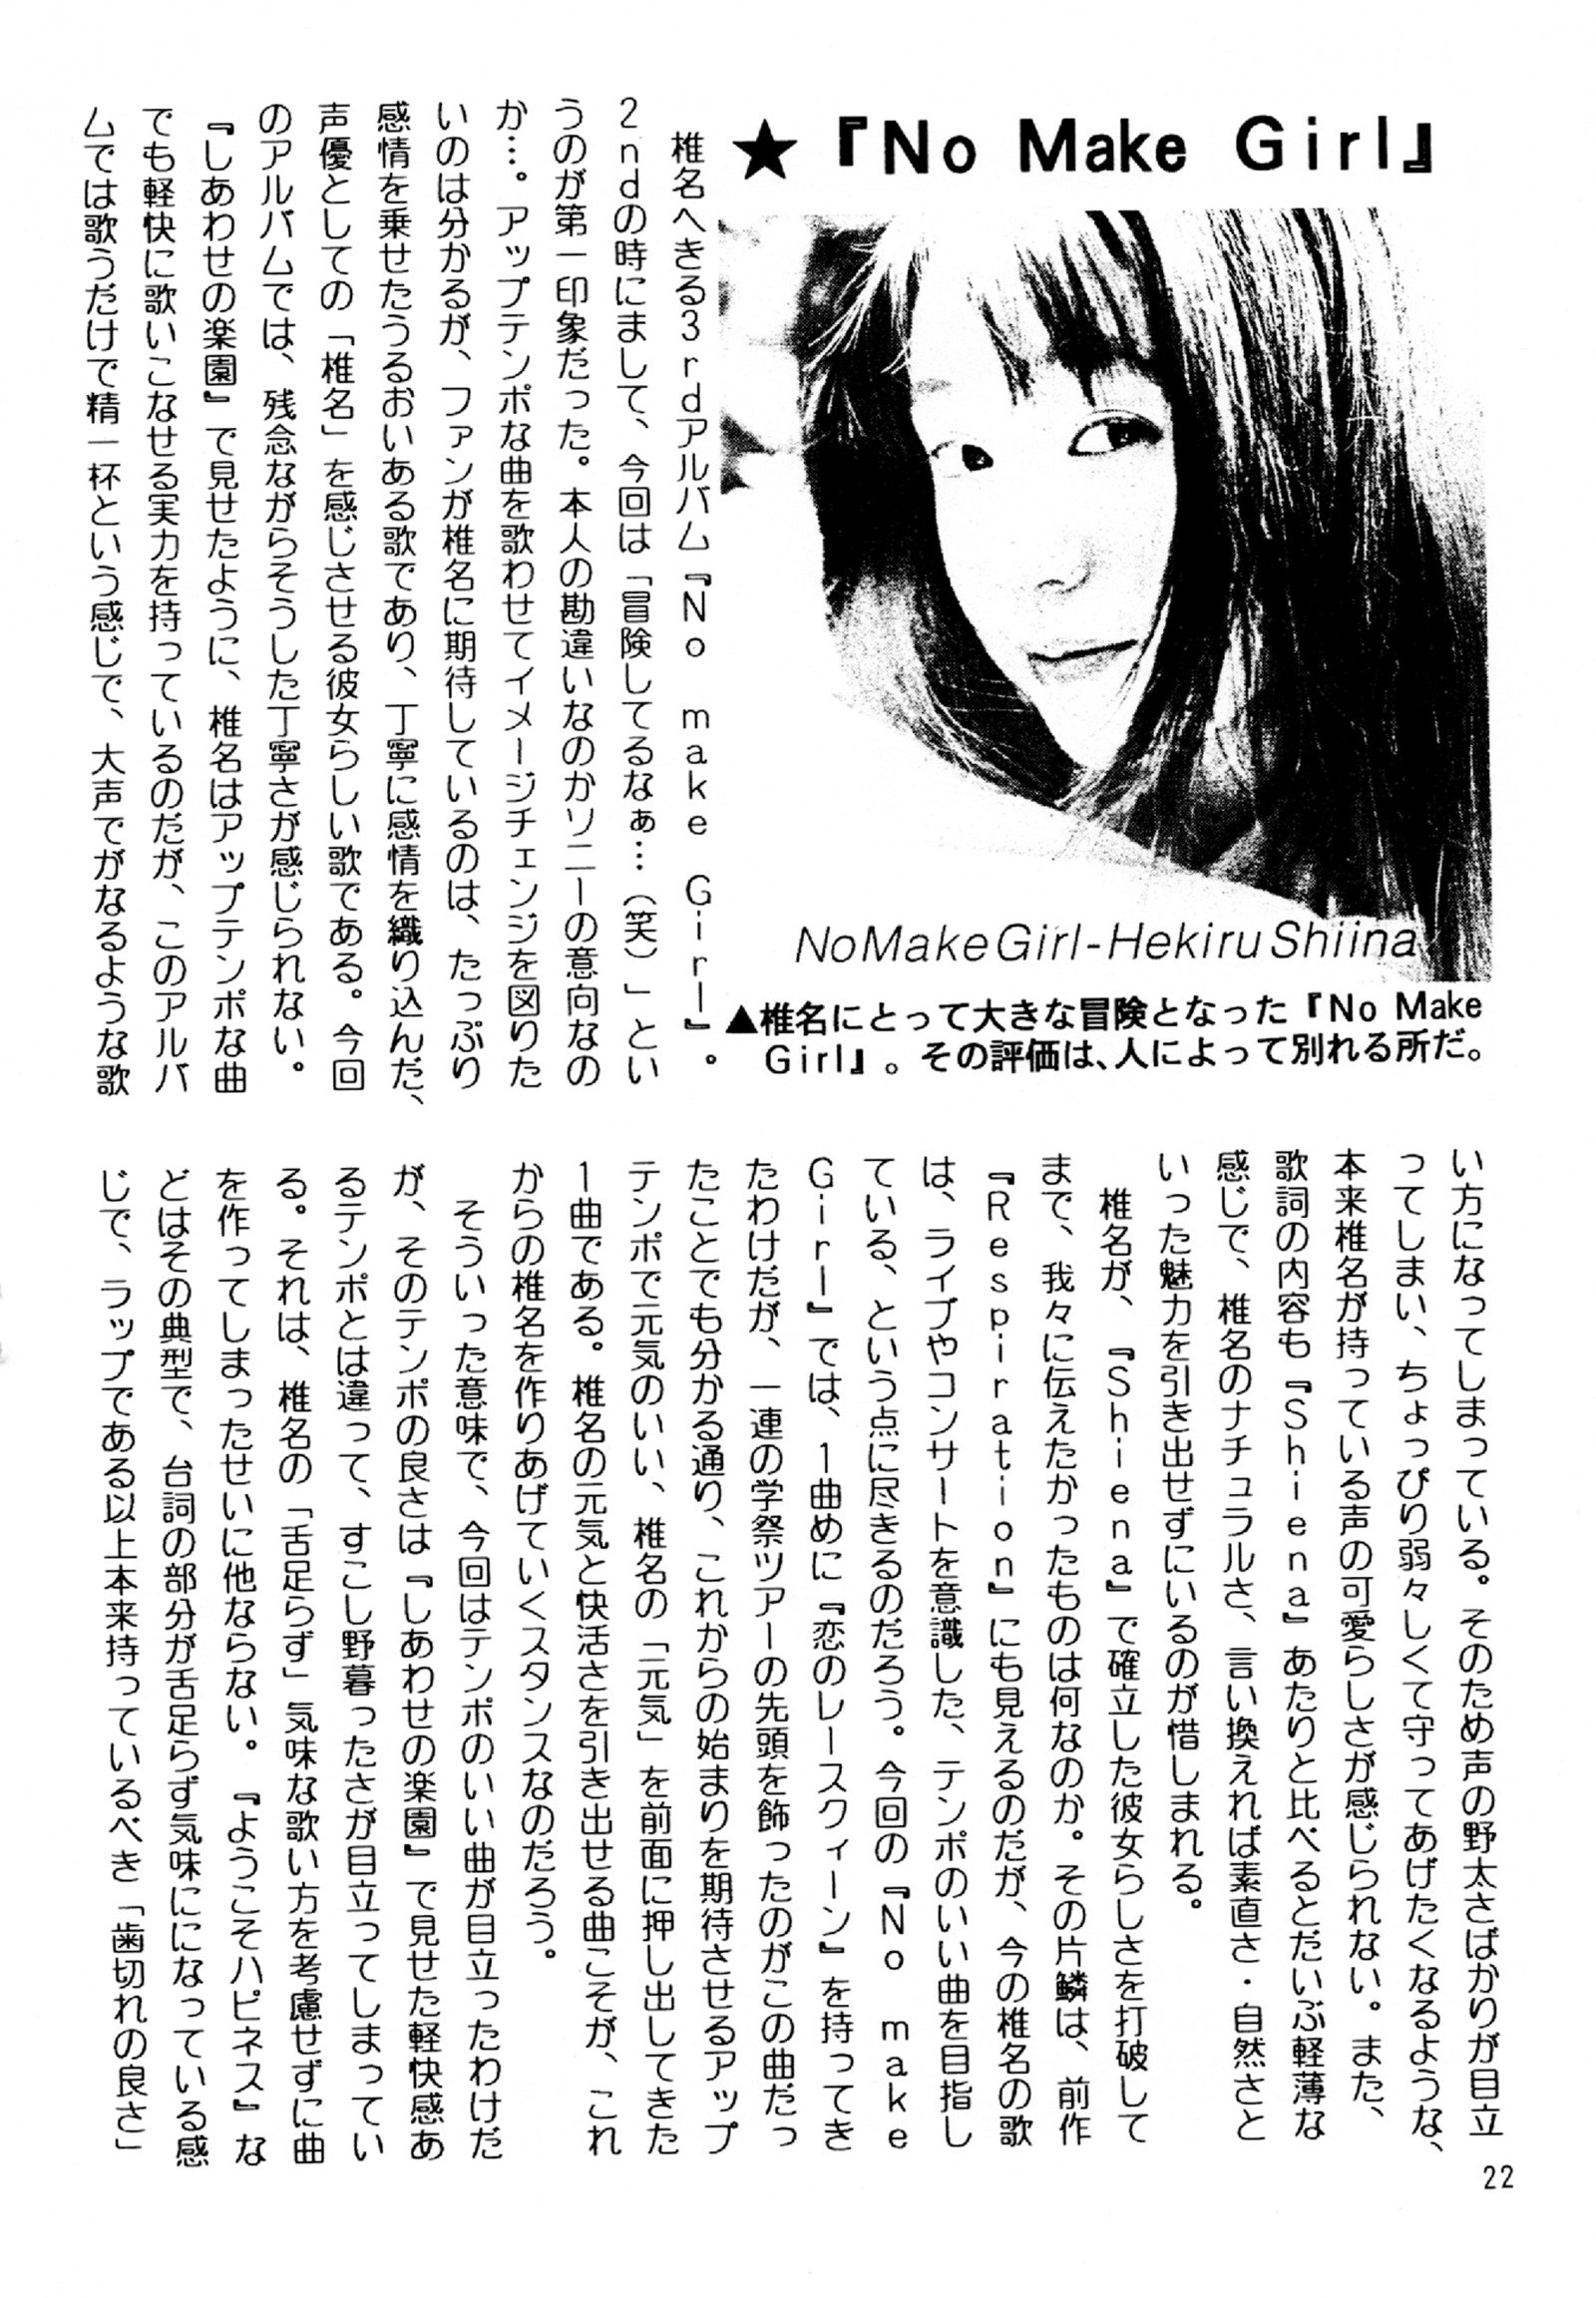 ★『No Make Girl』
NoMakeGirl-HekiruShiina
▲椎名にとって大きな冒険となった『No Make
Girl』。その評価は、人によって別れる所だ。
椎名へきる3rdアルバム『No make Girl』。
2ndの時にまして、今回は「冒険してるなぁ…(笑)」とい
うのが第一印象だった。本人の勘違いなのかソニーの意向なの
か…。アップテンポな曲を歌わせてイメージチェンジを図りた
いのは分かるが、ファンが椎名に期待しているのは、たっぷり
感情を乗せたうるおいある歌であり、丁寧に感情を織り込んだ、
声優としての「椎名」を感じさせる彼女らしい歌である。今回
のアルバムでは、残念ながらそうした丁寧さが感じられない。
『しあわせの楽園』で見せたように、椎名はアップテンポな曲
でも軽快に歌いこなせる実力を持っているのだが、このアルバ
ムでは歌うだけで精一杯という感じで、大声でがなるような歌
い方になってしまっている。そのため声の野太さばかりが目立
ってしまい、ちょっぴり弱々しくて守ってあげたくなるような、
本来椎名が持っている声の可愛らしさが感じられない。また、
歌詞の内容も『Shiena』あたりと比べるとだいぶ軽薄な
感じで、椎名のナチュラルさ、言い換えれば素直さ・自然さと
いった魅力を引き出せずにいるのが惜しまれる。
椎名が、『Shiena』で確立した彼女らしさを打破して
まで、我々に伝えたかったものは何なのか。その片鱗は、前作
『Respiration』にも見えるのだが、今の椎名の歌
は、ライブやコンサートを意識した、テンポのいい曲を目指し
ている、という点に尽きるのだろう。今回の『No make
Girl』では、1曲めに『恋のレースクィーン』を持ってき
たわけだが、一連の学祭ツアーの先頭を飾ったのがこの曲だっ
たことでも分かる通り、これからの始まりを期待させるアップ
テンポで元気のいい、椎名の「元気」を前面に押し出してきた
1曲である。椎名の元気と快活さを引き出せる曲こそが、これ
からの椎名を作りあげていくスタンスなのだろう。
そういった意味で、今回はテンポのいい曲が目立ったわけだ
が、そのテンポの良さは『しあわせの楽園』で見せた軽快感あ
るテンポとは違って、すこし野暮ったさが目立ってしまってい
る。それは、椎名の「舌足らず」気味な歌い方を考慮せずに曲
を作ってしまったせいに他ならない。『ようこそハピネス』な
どはその典型で、台詞の部分が舌足らず気味にになっている感
じで、ラップである以上本来持っているべき「歯切れの良さ」
22